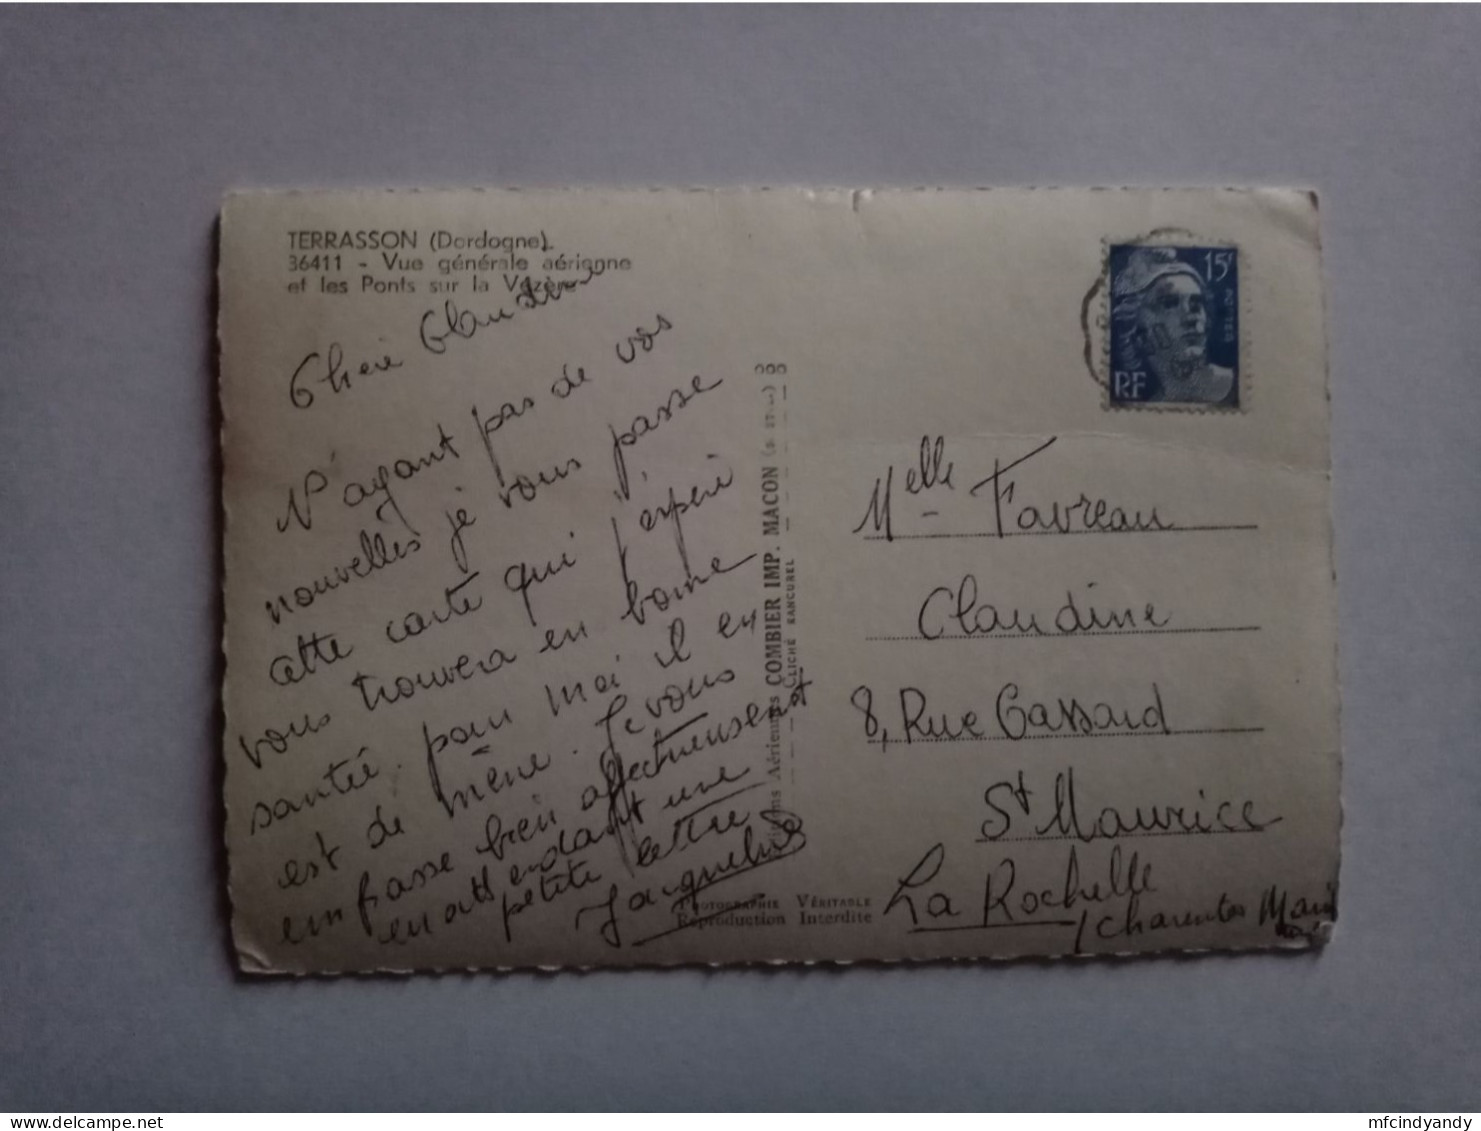 TERRASSON (Dordogne).
36411 - Vue générale aérienne
et les Ponts sur la Vézère
Chère Claudine
N'ayant pas de vos
nouvelles je vous passe
cette carte qui j'espère
vous trouvera en bonne
santé. pour moi il en
est de même. Je vous
embrasse bien affectueusement
en attendant une
petite lettre
Jacqueline
Éditions Aériennes COMBIER IMP. MACON
CLICHÉ RANCUREL
PHOTOGRAPHIE VÉRITABLE
Reproduction Interdite
15F
RF
Melle Favreau
Claudine
8, Rue Gassard
St Maurice
La Rochelle
(Charentes Mari
mfcindyandy